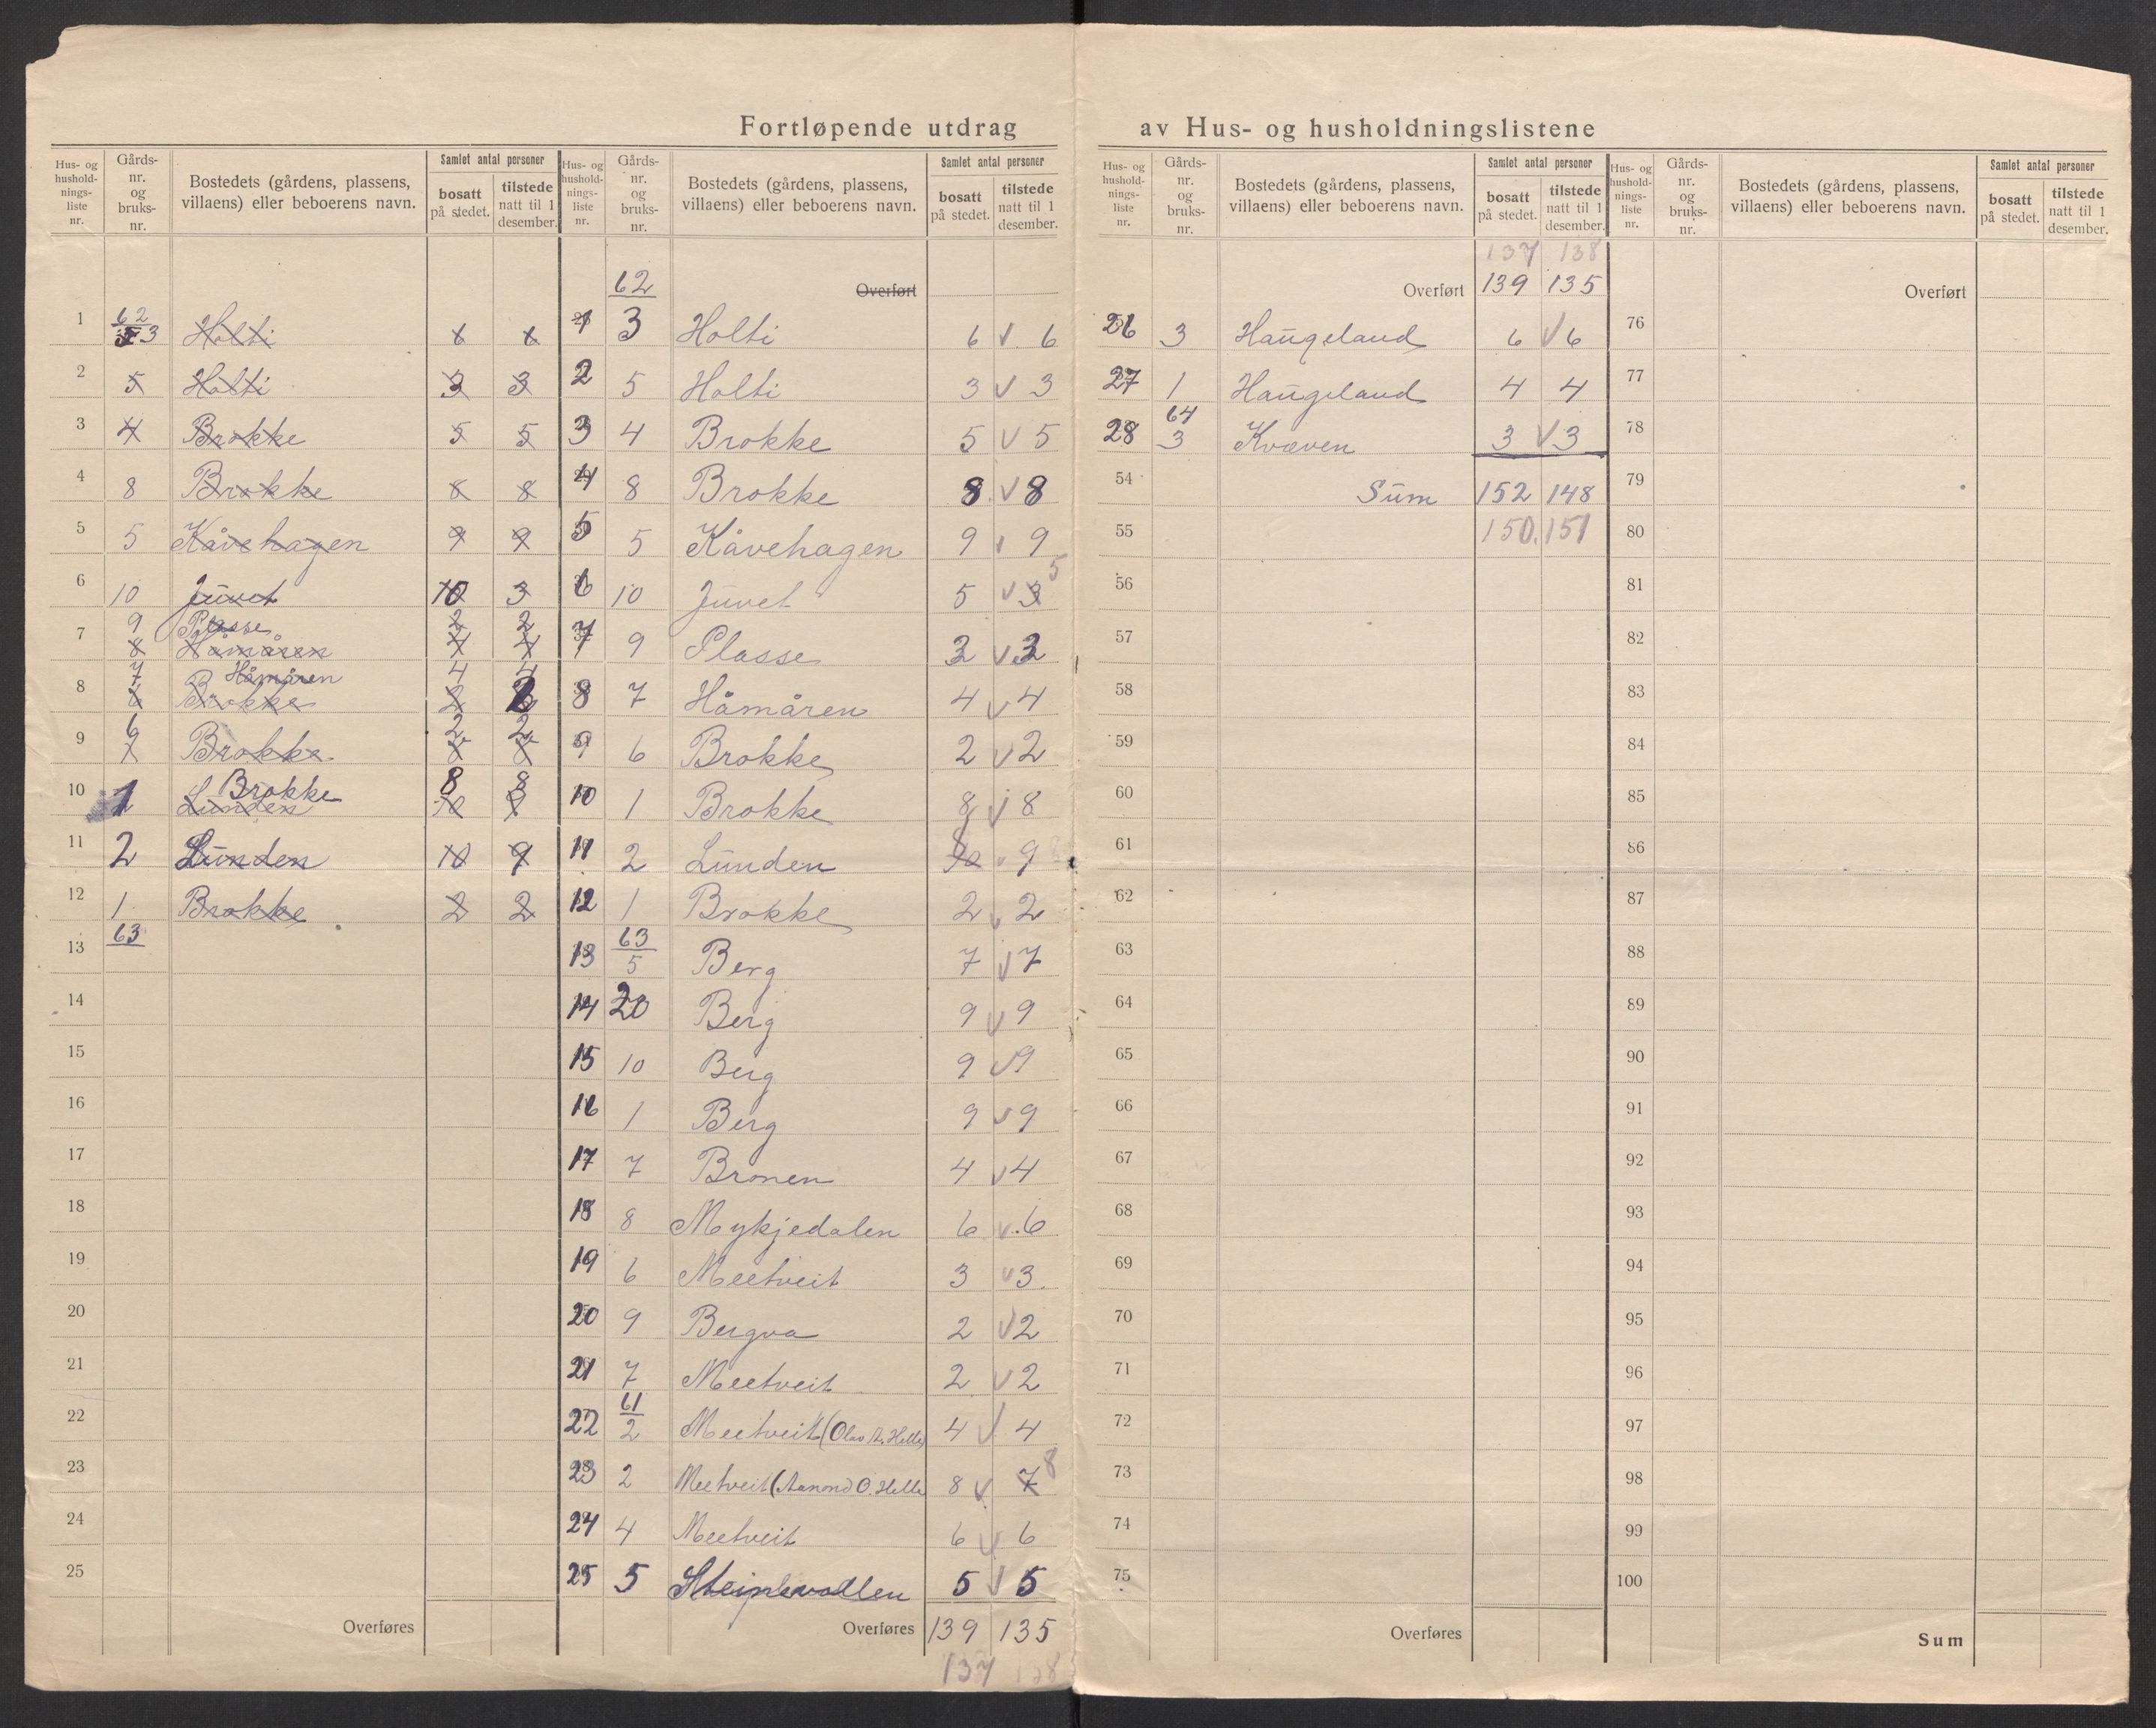 Fortløpende utdrag av Hus- og husholdningslistene
Hus- og husholdningsliste nr. | Gårds- nr. og bruks- nr. | Bostedets (gårdens, plassens, villaens) eller beboerens navn. | Samlet antal personer bosatt på stedet. | tilstede natt til 1 desember.
1 62/3 Holti 6 6
2 5 Holti 3 3
3 4 Brokke 5 5
4 8 Brokke 8 8
5 5 Kåvehagen 9 9
6 10 Juvet 10 3
7 9 Plasse 2 2
8 Håmåren 4 4
7 7 Håmåren 4 4
8 6 Brokke 2 2
9 6 Brokke 2 2
10 1 Brokke 8 8
Lunden 10 9
11 2 Lunden 10 9
12 1 Brokke 2 2
13 63
14
15
16
17
18
19
20
21
22
23
24
25
Overføres
Hus- og husholdningsliste nr. | Gårds- nr. og bruks- nr. | Bostedets (gårdens, plassens, villaens) eller beboerens navn. | Samlet antal personer bosatt på stedet. | tilstede natt til 1 desember.
62 Overført
1 3 Holti 6 v 6
2 5 Holti 3 v 3
3 4 Brokke 5 v 5
4 8 Brokke 8 v 8
5 5 Kåvehagen 9 v 9
6 10 Juvet 5 v 3 5
7 9 Plasse 2 v 2
8 7 Håmåren 4 v 4
9 6 Brokke 2 v 2
10 1 Brokke 8 v 8
11 2 Lunden 10 v 9
12 1 Brokke 2 v 2
13 63/5 Berg 7 v 7
14 20 Berg 9 v 9
15 10 Berg 9 v 9
16 1 Berg 9 v 9
17 7 Bronen 4 v 4
18 8 Mykjedalen 6 v 6
19 6 Meetveit 3 v 3
20 9 Bergva 2 v 2
21 7 Meetveit 2 v 2
22 61/2 Meetveit (Olav A. Helle) 4 v 4
23 2 Meetveit (Aanond O. Helle 8 v 7 8
24 4 Meetveit 6 v 6
25 5 5 v 5
Overføres 139 135
137 138
Hus- og husholdningsliste nr. | Gårds- nr. og bruks- nr. | Bostedets (gårdens, plassens, villaens) eller beboerens navn. | Samlet antal personer bosatt på stedet. | tilstede natt til 1 desember.
137 138
Overført 139 135
26 3 Haugeland 6 v 6
27 1 Haugeland 4 4
28 64/3 Kvæven 3 v 3
54 Sum 152 148
55 150. 151
56
57
58
59
60
61
62
63
64
65
66
67
68
69
70
71
72
73
74
75
Overføres
Hus- og husholdningsliste nr. | Gårds- nr. og bruks- nr. | Bostedets (gårdens, plassens, villaens) eller beboerens navn. | Samlet antal personer bosatt på stedet. | tilstede natt til 1 desember.
Overført
76
77
78
79
80
81
82
83
84
85
86
87
88
89
90
91
92
93
94
95
96
97
98
99
100
Sum